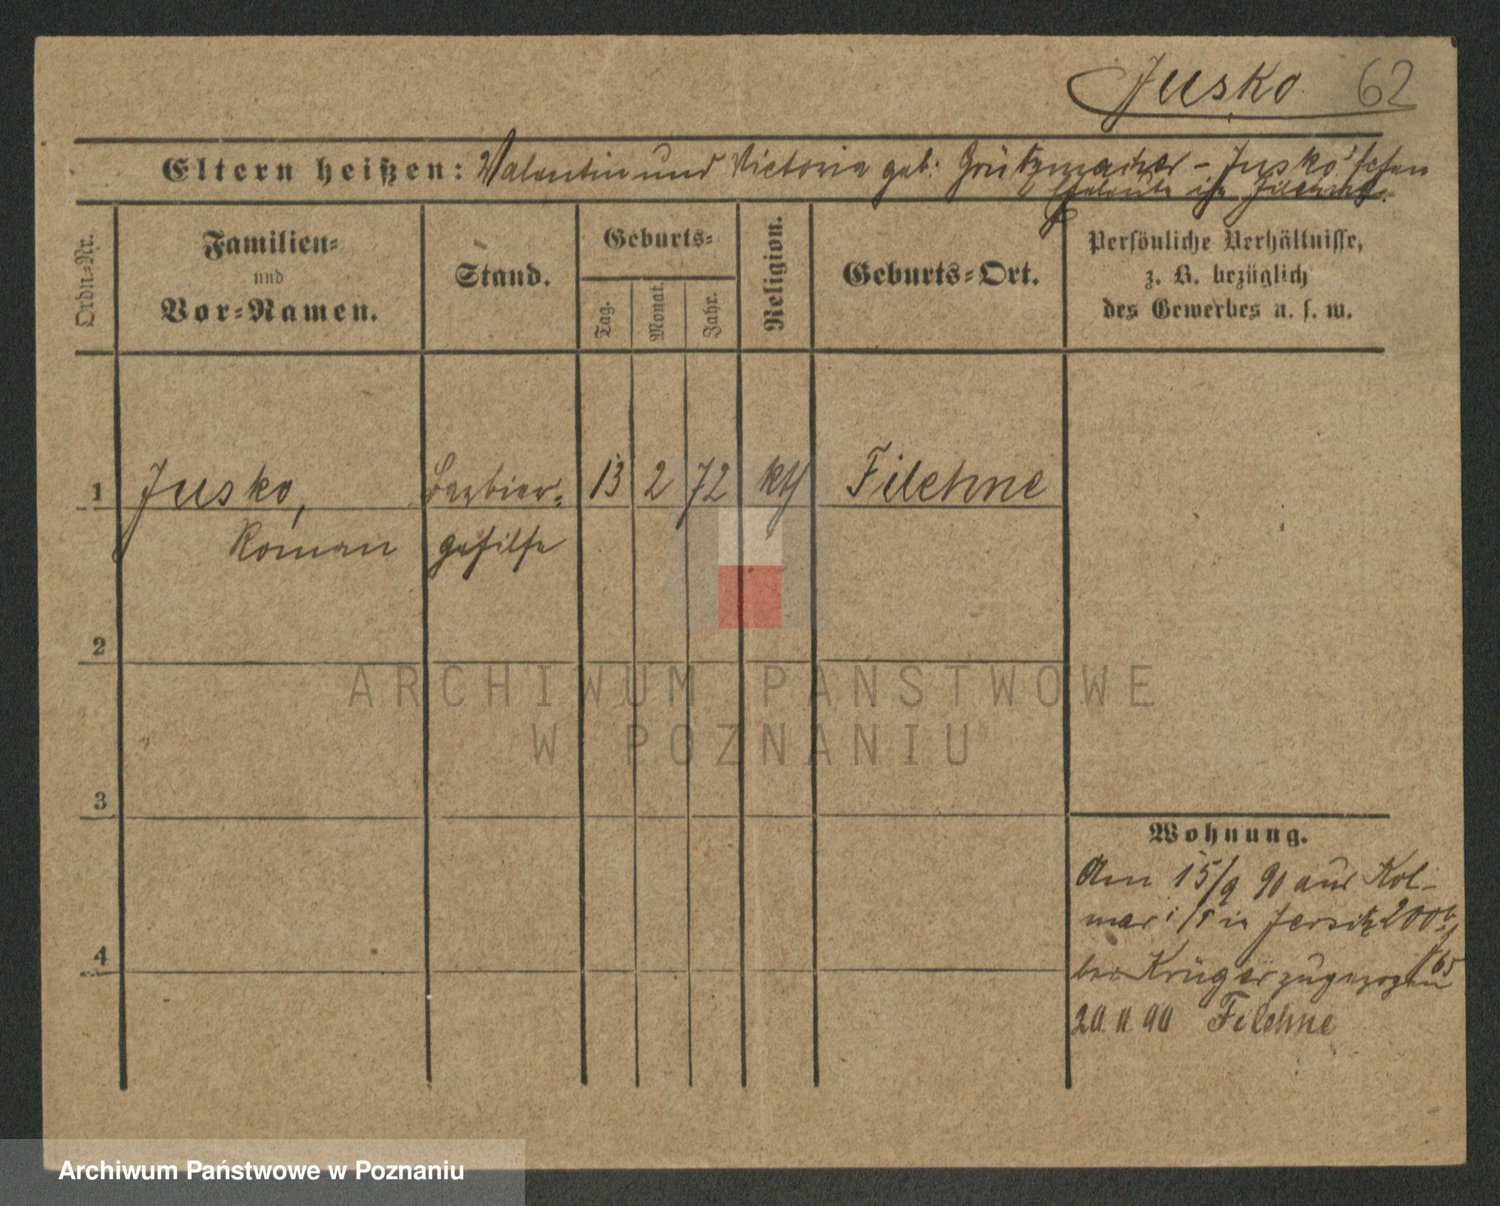 Jusko 62
Eltern heißen: Valentin und Victoria geb: Grützmacher - Jusko'schen
Eheleute in Filehne.
Ordn=Nr.
Familien=
und
Vor=Namen.
Stand.
Geburts=
Tag.
Monat.
Jahr.
Religion.
Geburts=Ort.
Persönliche Verhältnisse,
z. B. bezüglich
des Gewerbes u. s. w.
1 Jusko, Barbier= 13 2 72 kth Filehne
Roman gehilfe
2
3
4
Wohnung.
Am 15/9 90 aus Kol-
mar i/P in Jersitz 200
bei Krüger zugezogen
20.11.90 Filehne
ARCHIWUM PAŃSTWOWE
W POZNANIU
Archiwum Państwowe w Poznaniu